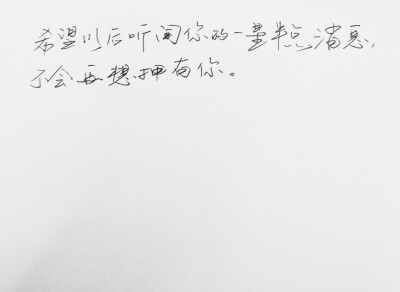 希望以后听闻你的一星半点消息,
不会再想拥有你。